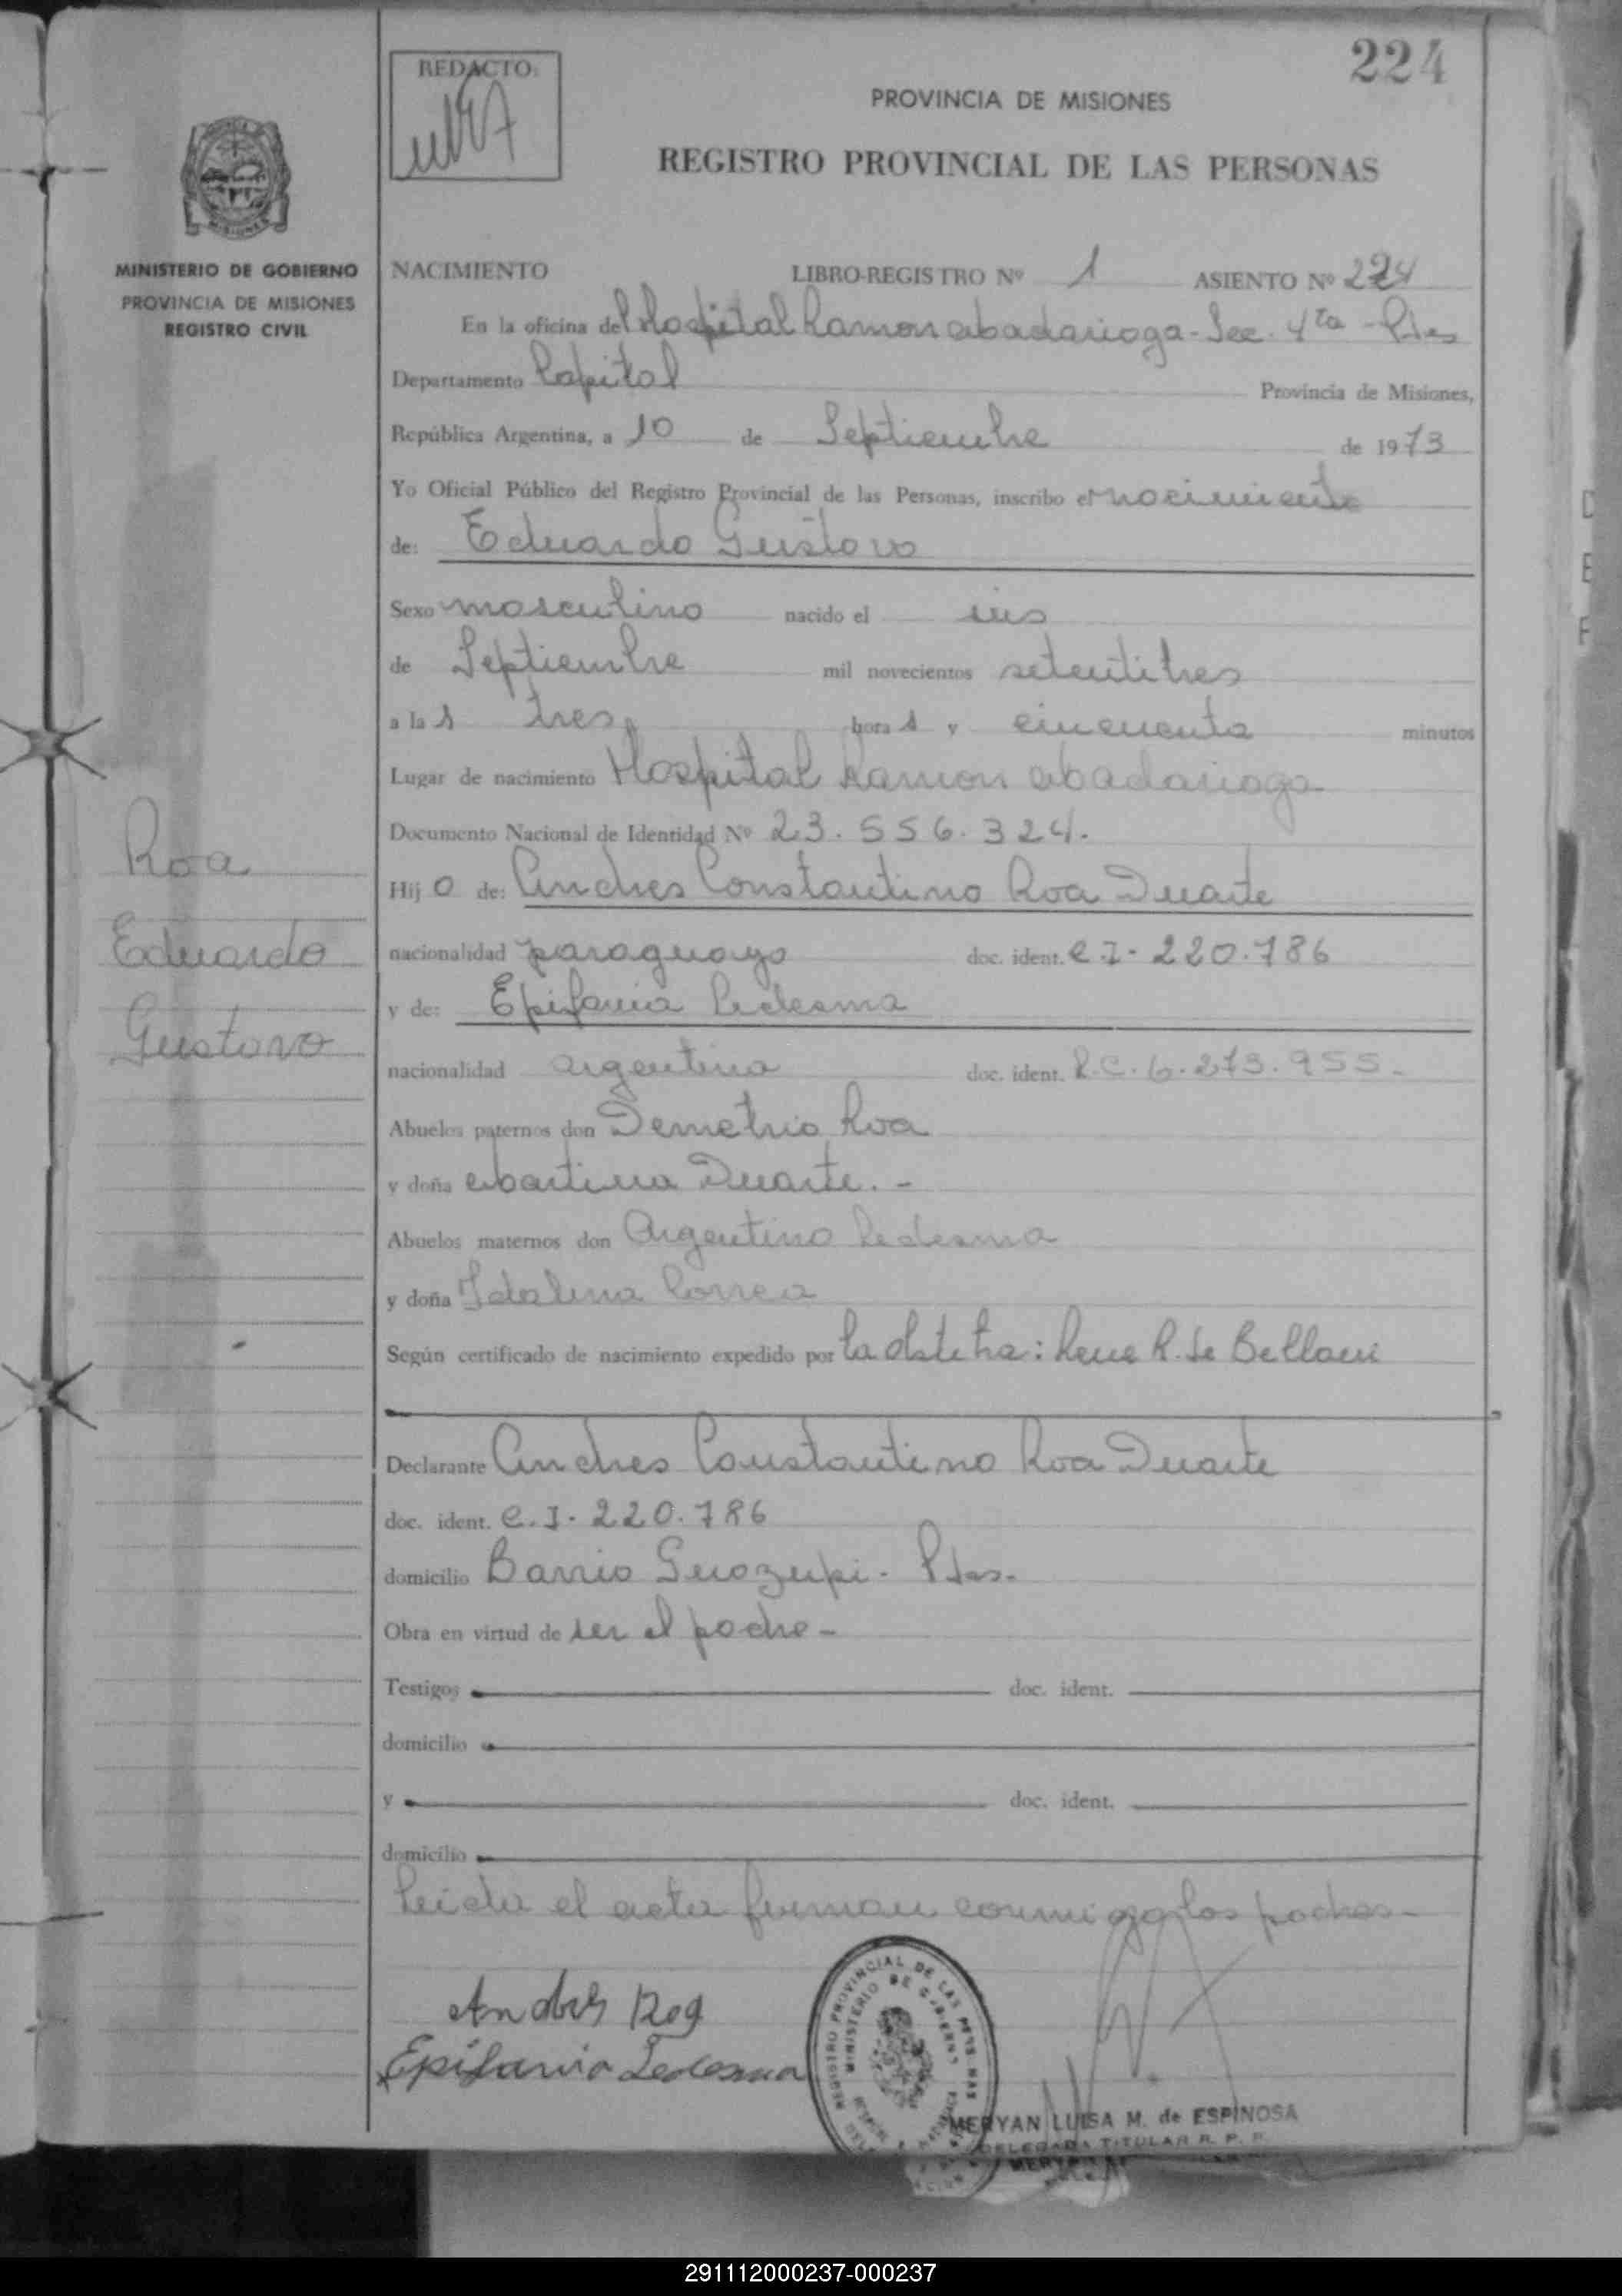 224
REDACTO:
PROVINCIA DE MISIONES
REGISTRO PROVINCIAL DE LAS PERSONAS
MISIONES
MINISTERIO DE GOBIERNO
PROVINCIA DE MISIONES
REGISTRO CIVIL
NACIMIENTO LIBRO-REGISTRO Nº 1 ASIENTO Nº 224
En la oficina del Hospital Ramon Madariaga - Sec. 4ta - Pdas
Departamento Capital Provincia de Misiones,
República Argentina, a 10 de Septiembre de 1973
Yo Oficial Público del Registro Provincial de las Personas, inscribo el nacimiento
de: Eduardo Gustavo
Sexo masculino nacido el
de Septiembre mil novecientos setentitres
a las tres, horas y cincuenta minutos
Lugar de nacimiento Hospital Ramon Madariaga
Documento Nacional de Identidad Nº 23.556.324.
Hijo de: Andres Constantino Roa Duarte
nacionalidad paraguayo doc. ident. C.I. 220.786
y de: Epifania Ledesma
nacionalidad argentina doc. ident. L.C. 6.273.955.-
Abuelos paternos don Demetrio Roa
y doña Martina Duarte.-
Abuelos maternos don Argentino Ledesma
y doña Idalina Correa
Según certificado de nacimiento expedido por la obstetra: Rene R. de Belloni
Declarante Andres Constantino Roa Duarte
doc. ident. C.I. 220.786
domicilio Barrio - Pdas.-
Obra en virtud de ser el padre-
Testigos doc. ident.
domicilio
y doc. ident.
domicilio
Leida el acta firman conmigo los padres-
Roa
Eduardo
Gustavo
Andres Roa
Epifania Ledesma
REGISTRO PROVINCIAL DE LAS PERSONAS
MINISTERIO DE GOBIERNO
MERYAN LUISA M. de ESPINOSA
DELEGADA TITULAR R. P. P.
291112000237-000237